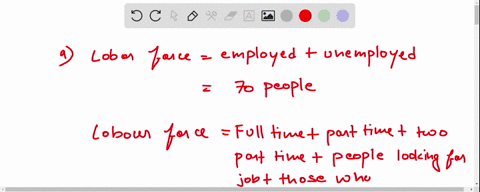 a) Labor force = employed + unemployed
= 70 people
Labour force = Full time + part time + two
part time + people looking for
job + those who